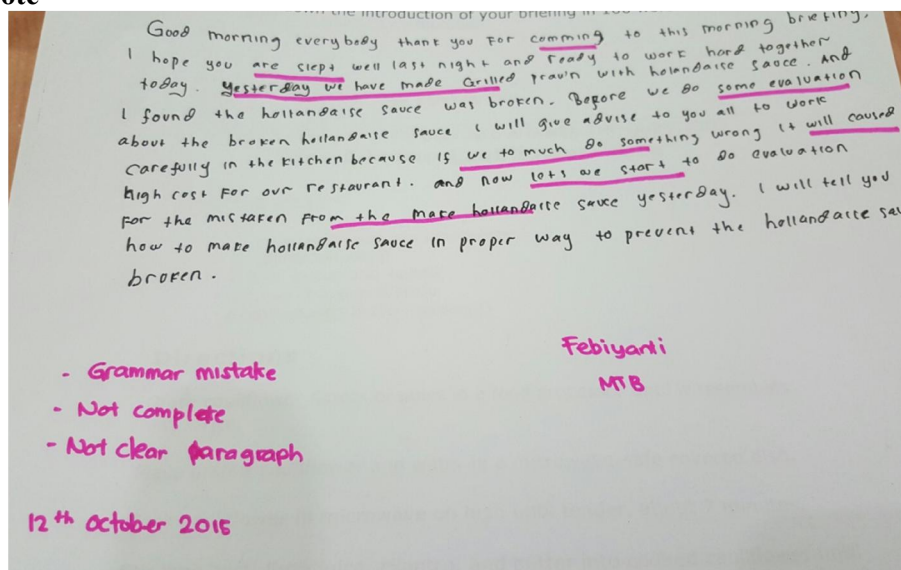 ote
the introduction of your briefing in
Good morning everybody thank you For comming to this morning briefing.
I hope you are slept well last night and ready to work hard together
today. Yesterday we have made Grilled prawn with holandaise sauce. And
I found the hollandaise sauce was broken. Before we do some evaluation
about the broken hollandaise sauce I will give advise to you all to work
carefully in the kitchen because if we to much do something wrong it will caused
high cost For our restaurant. and now lets we start to do evaluation
For the mistaken From the make hollandaise sauce yesterday. I will tell you
how to make hollandaise sauce in proper way to prevent the hollandaise sau
broken.
Febiyanti
MTB
- Grammar mistake
- Not complete
- Not clear paragraph
12th october 2015